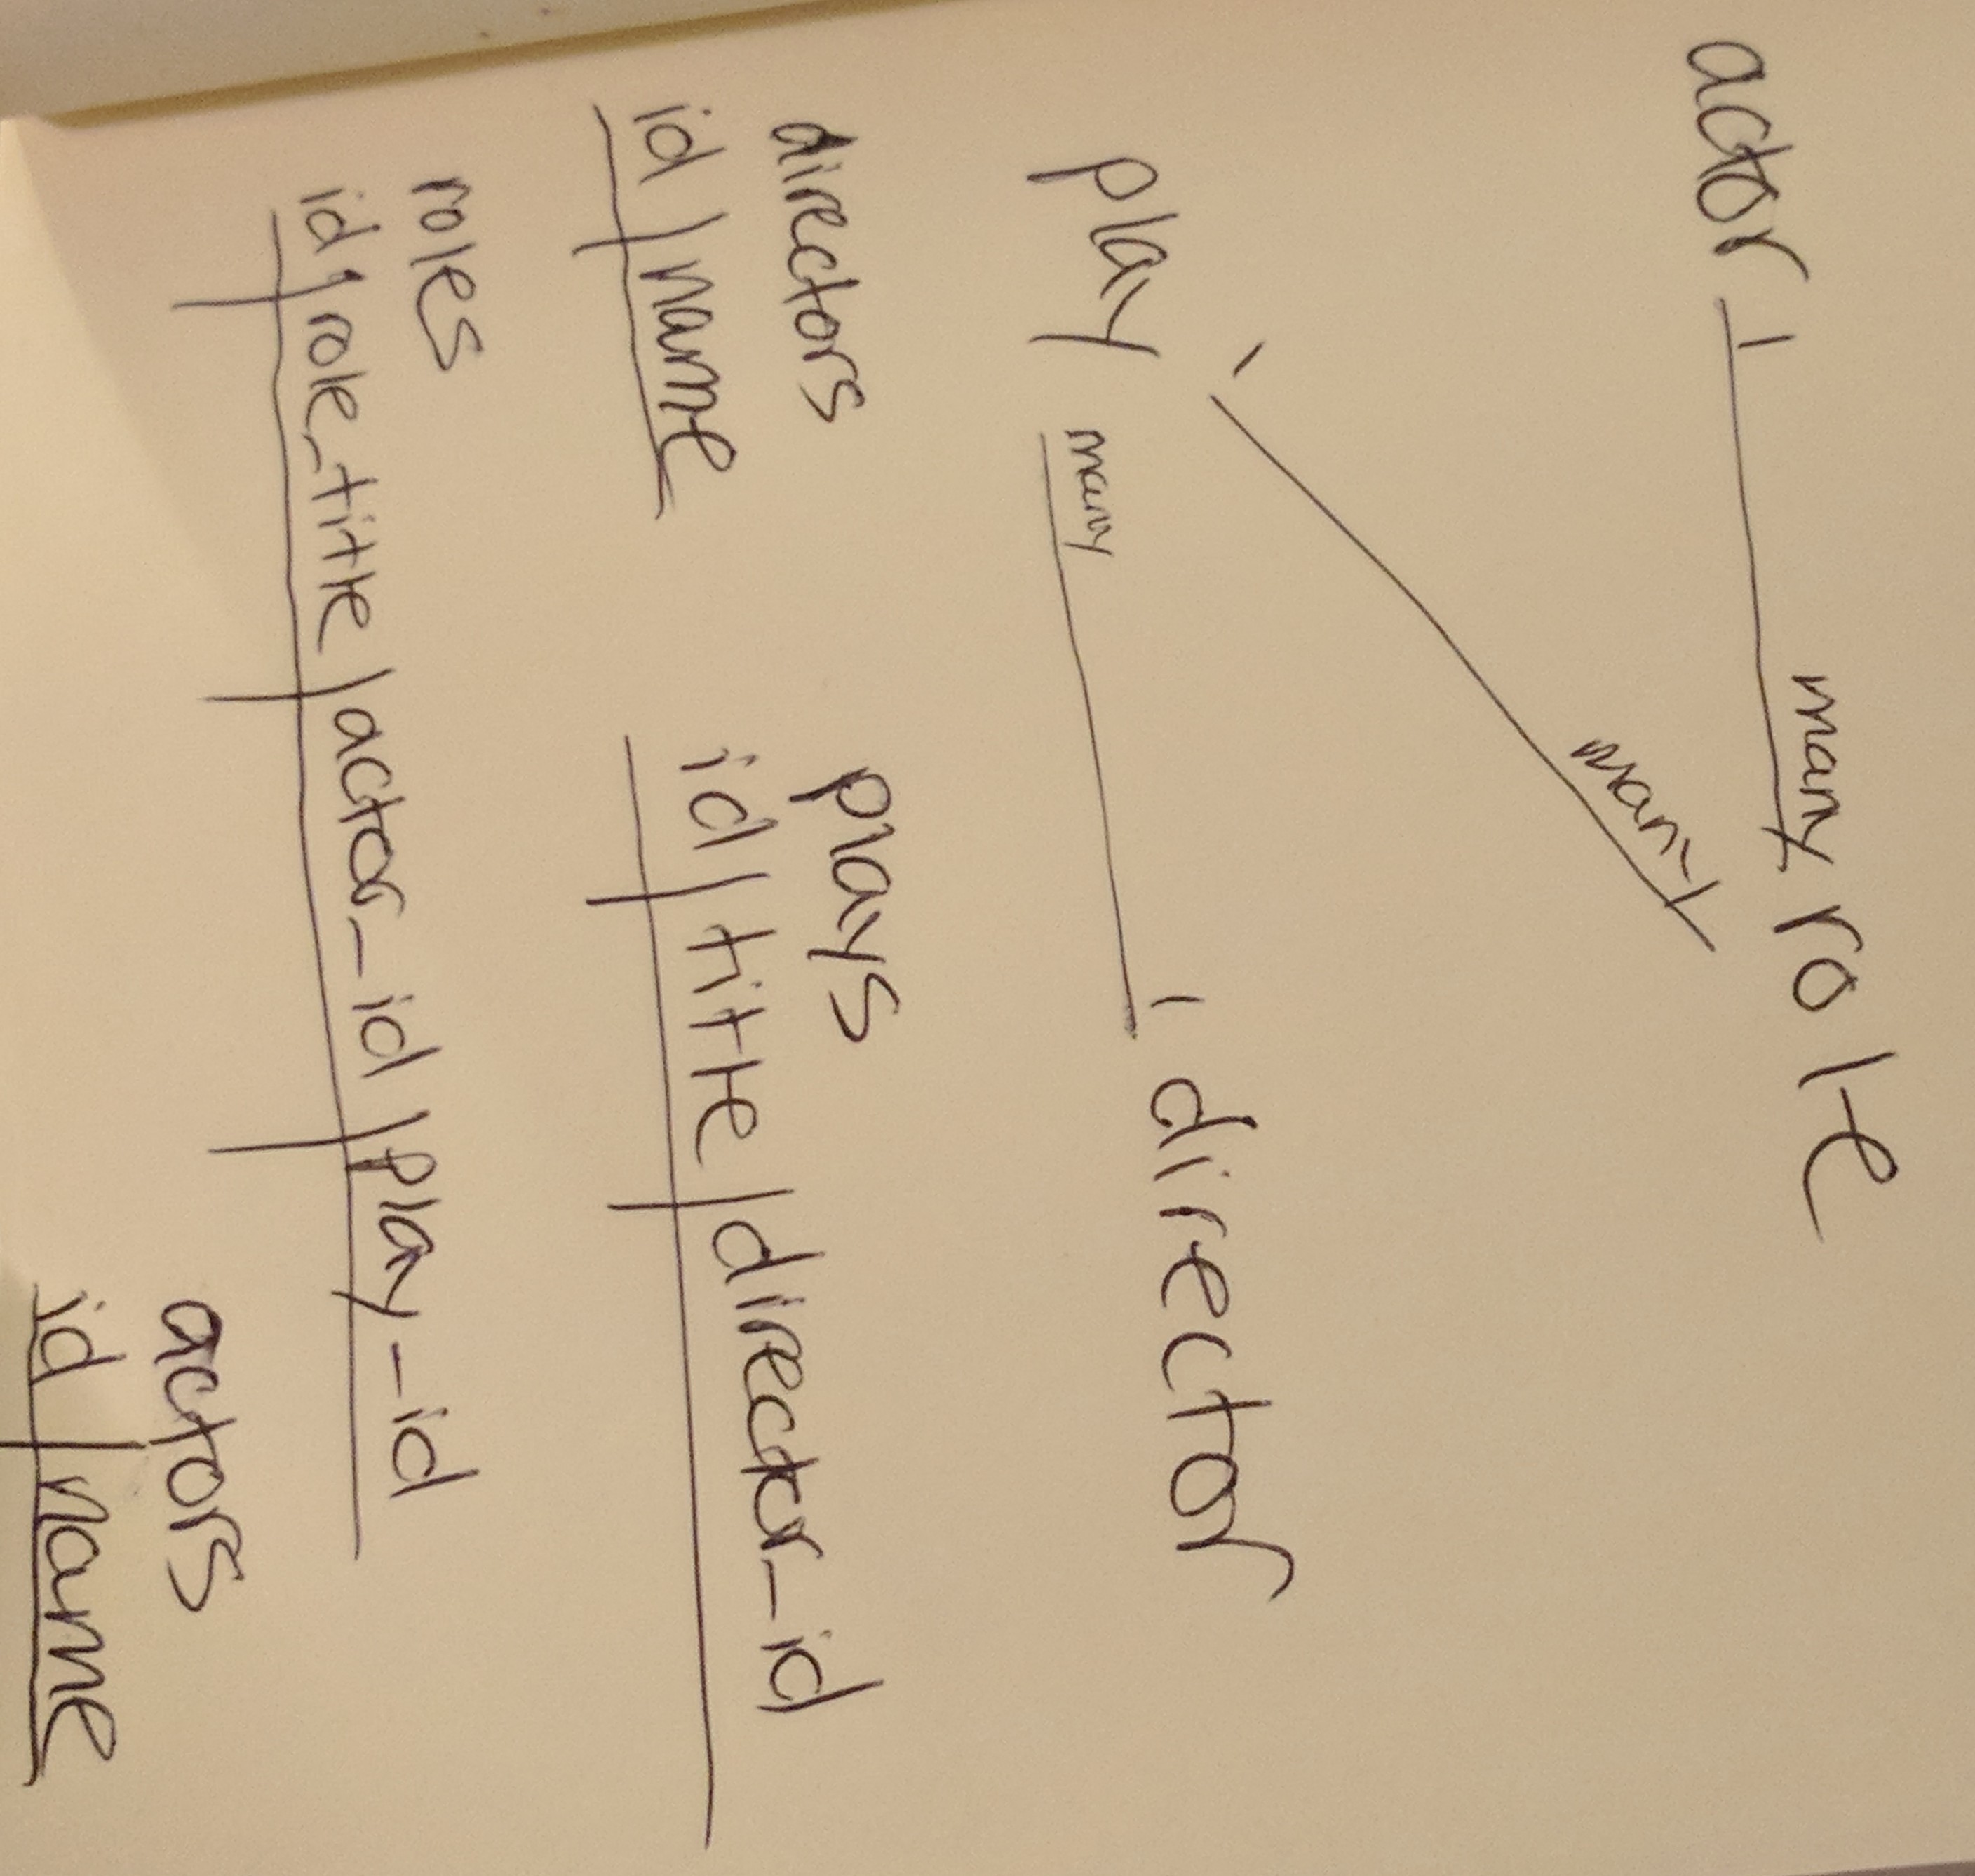 actor 1 many role
many
1
play many 1 director
directors plays
id | name id | title | director_id
roles
id | role_title | actor_id | play_id
actors
id | name